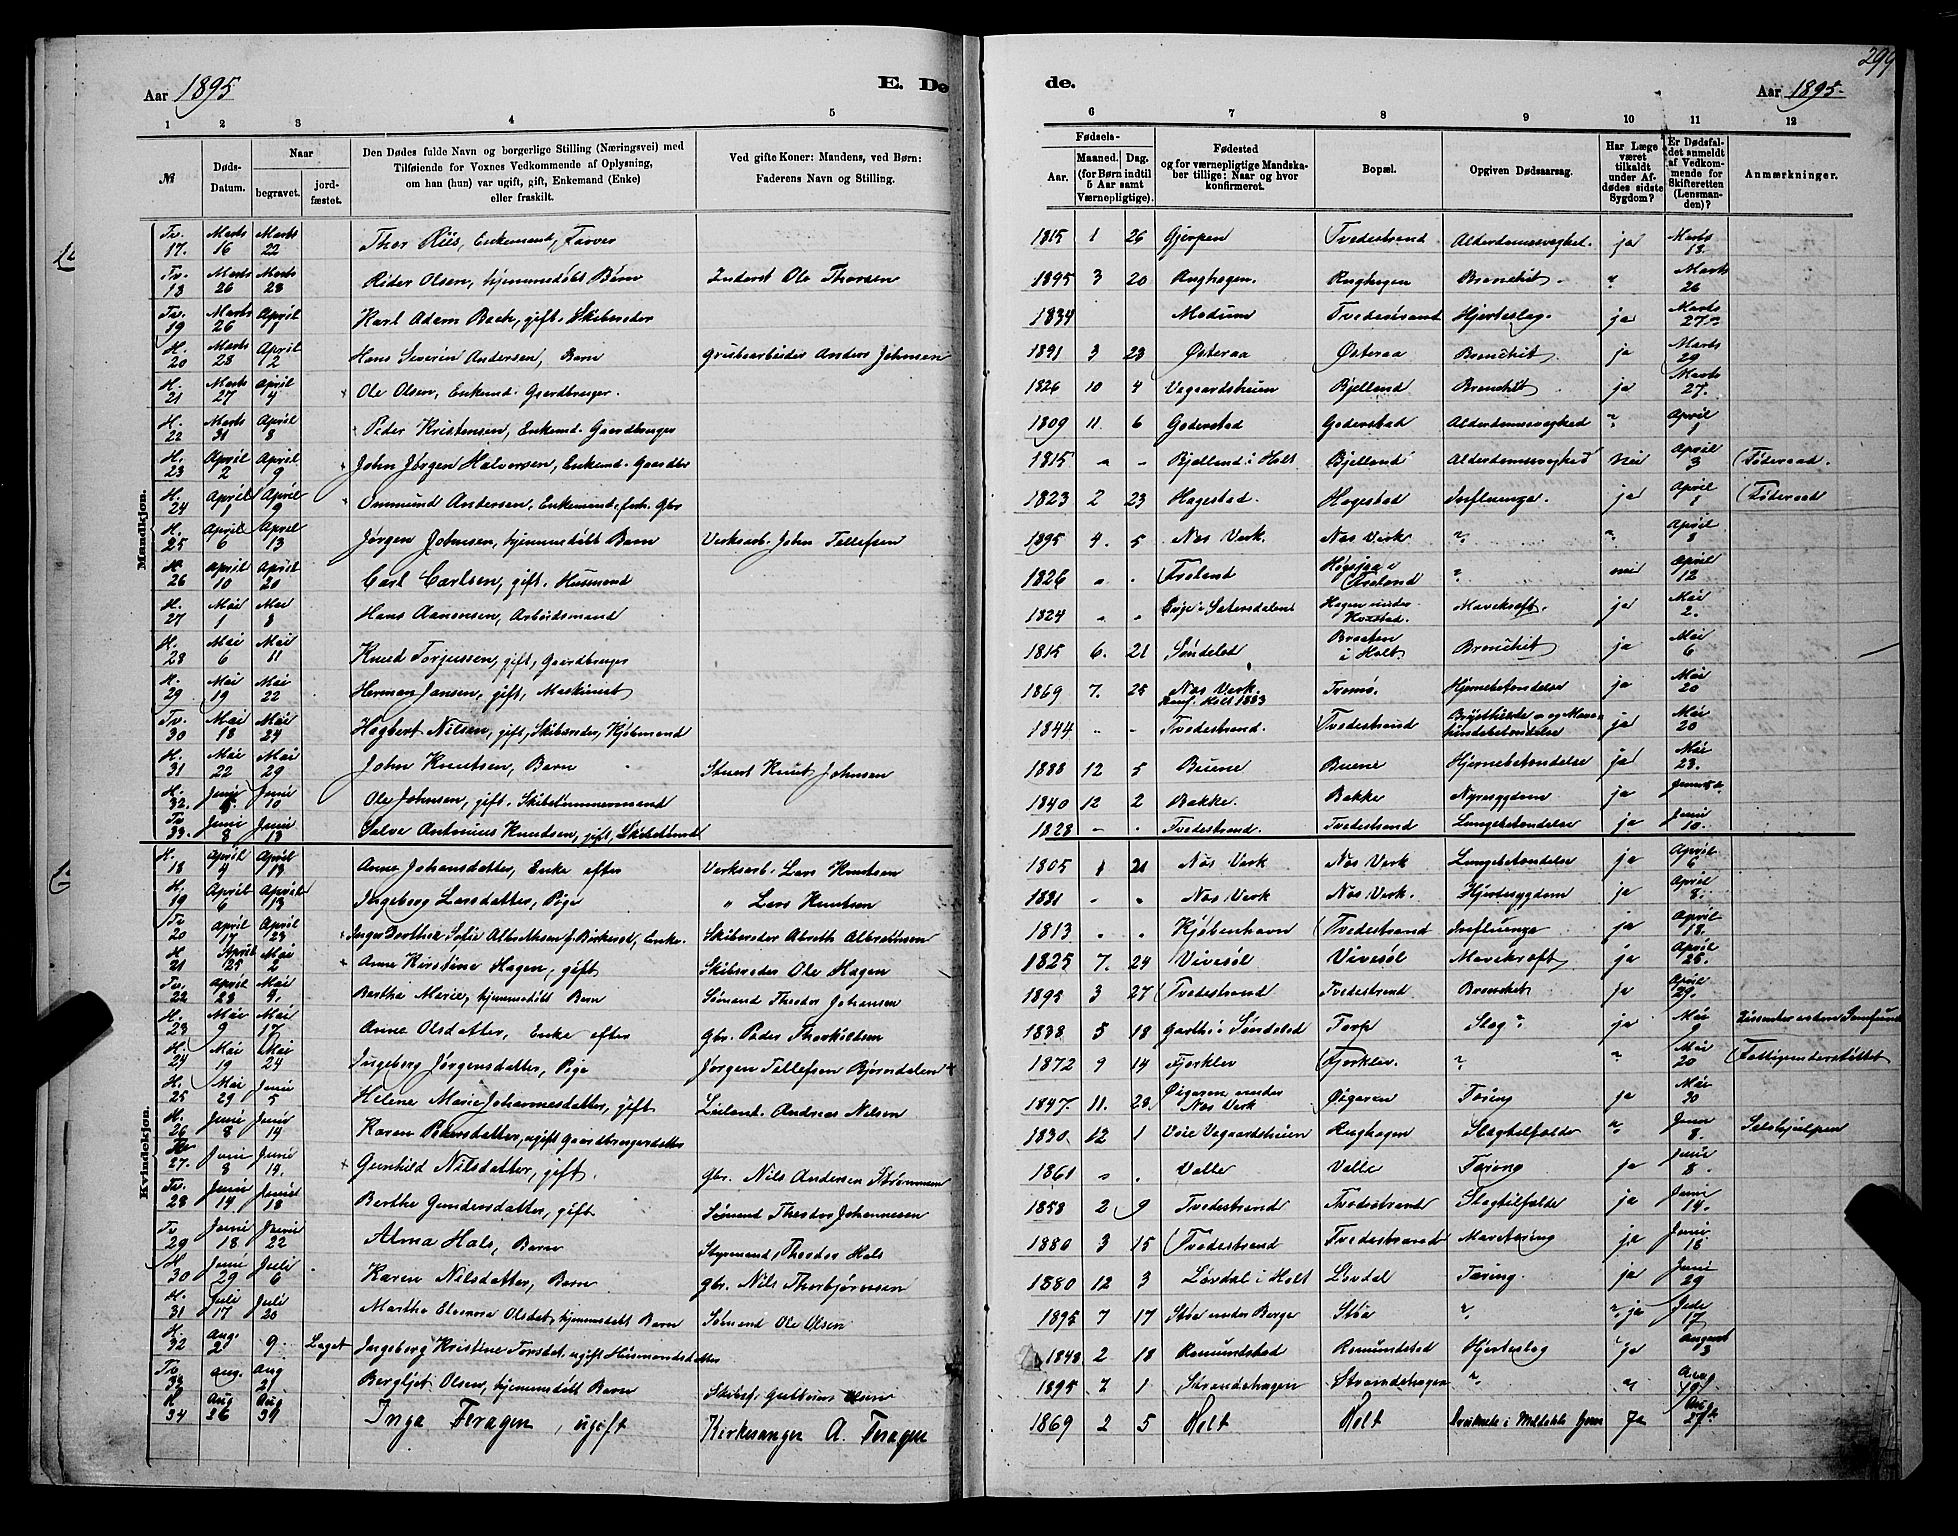 299
Aar 1895
E. Dø
de.
Aar 1895.
1 2 3 4 5
6 7 8 9 10 11 12
№
Døds-Datum.
Naar
begravet.
jord-fæstet.
Den Dødes fulde Navn og borgerlige Stilling (Næringsvei) med
Tilføiende for Voxnes Vedkommende af Oplysning,
om han (hun) var ugift, gift, Enkemand (Enke)
eller fraskilt.
Ved gifte Koner: Mandens, ved Børn:
Faderens Navn og Stilling.
Fødsels-
Aar.
Maaned. Dag.
(for Børn indtil
5 Aar samt
Værnepligtige).
Fødested
og for værnepligtige Mandska-
ber tillige: Naar og hvor
konfirmeret.
Bopæl.
Opgiven Dødsaarsag.
Har Læge
været
tilkaldt
under Af-
dødes sidste
Sygdom?
Er Dødsfal-
det anmeldt
af Vedkom-
mende for
Skifteretten
(Lensman-
den)?
Anmærkninger.
Mandkjøn.
Tv. 17. Marts 16 Marts 22 Thor Riis, Enkemand, Farver 1815 1 26 Gjerpen Tvedestrand Alderdomssvaghed. ja Marts 18.
Tv. 18 Marts 26 Marts 28 Reder Olsen, hjemmedøbt Barn Inderst Ole Thorsen 1895 3 20 Rughagen. Rughagen Bronchit. " Marts 26
Tv. 19 Marts 26 April 1 Karl Adam Bach, gift, Skibsreder 1834 Modum Tvedestrand Hjerteslag. ja Marts 27
H. 20 Marts 28 April 2 Hans Severin Andersen, Barn Grubearbeider Anders Johnsen 1891 3 23 Østeraa Østeraa Bronchit. ja Marts 29
H. 21 Marts 27 April 4 Ole Olsen, Enkemd. Gaardbruger. 1826 10 4 Vegaardsheien Bjelland Bronchit. ja Marts 27.
H. 22 Marts 31 April 8 Peder Kristensen, Enkemd. Gaardbruger 1809 11 6 Goderstad Goderstad Alderdomssvaghed " April 1
H. 23 April 2 April 9 John Jørgen Halvorsen, Enkemd. Gaardbr 1815 " " Bjelland i Holt Bjelland Alderdomssvaghed nei April 3 Føderaad.
H. 24 April 1 April 9 Ommund Andersen, Enkemand, Gbr 1823 2 23 Hagestad. Hagestad Influenza. ja April 1 Føderaad
H. 25 April 6 April 13 Jørgen Johnsen, hjemmedøbt Barn Verksarb. John Tellefsen 1895 4. 5 Næs Verk. Næs Verk " " April 8
H 26 April 10 April 20 Carl Carlsen, gift, Husmand 1826 " " Fræland Fræland " nei April 12
H. 27 Mai 1 Mai 8 Hans Aanonsen, Arbeidsmand 1824 " " i Sætersdalen Hagen under Mavekræft. ja Mai 2.
H. 28 Mai 6 Mai 11 Knud Torjussen, gift, Gaardbruger 1815 6. 21 Søndeled Braaten i Holt. Bronchit ja Mai 6
H. 29 Mai 19 Mai 22 Herman Jansen, gift, Maskinist 1869 7. 25 Næs Verk. Konf. Holt 1883 Tromø. Hjernebetændelse ja Mai 20
Tv. 30 Mai 18 Mai 24 Hagbert Nilsen, gift, Skibsreder, Kjøbmand 1844 " " Tvedestrand. Tvedestrand ja Mai 20
H. 31 Mai 22 Mai 29 John Knutsen, Barn Stuert Knut Johnsen 1888 12 5 Buene Buene Hjernebetændelse ja Mai 23.
H. 32. Juni 5. Juni 10 Ole Johnsen, gift. Skibstømmermand 1840 12 2 Bakke. Bakke Nyresygdom ja Juni
Tv 33. Juni 8 Juni 13 Salve Antonius Knudsen, gift, Skibstømd 1828 " " Tvedestrand. Tvedestrand Lungebetændelse ja Juni 10.
Kvindekjøn.
H. 18 April 4 April 13 Anne Johansdatter, Enke efter Verksarb. Lars Knutsen 1805 1 21 Næs Verk Næs Verk Lungebetændelse ja April 6
H. 19 April 6 April 13 Ingeborg Larsdatter, Pige " Lars Knutsen 1831 " " Næs Verk Næs Verk. Hjertesygdom ja April 8.
Tv 20 April 17 April 23 Inger Dorthea Sofie Albrethsen f. Birkerod, Enke. Skibsreder Abreth Albrethsen 1813 " " Kjøbenhavn Tvedestrand Influenza ja April 18.
H 21 April 25 Mai 2 Anne Kirstine Hagen, gift Skibsreder Ole Hagen 1825 7. 24 Vivesøl Vivesøl Mavekræft ja April 26.
Tv. 22 April 28 Mai 4. Bertha Marie, hjemmedøbt Barn Sømand Theodor Johansen 1895 3 27 Tvedestrand Tvedestrand Bronchit ja April 29.
H. 23 Mai 9 Mai 17 Anne Olsdatter, Enke efter Gbr. Peder Thorkildsen 1838 5 18 Garth i Søndeled Torp Slag " ja Mai 9
H. 24 Mai 19 Mai 24 Ingeborg Jørgensdatter, Pige Jørgen Tellefsen Bjørndalen 1872 9 14 Fjorklev Fjorklev. " " Mai 20 Fattigunderstøttet
H. 25 Mai 29 Juni 5 Helene Marie Johannesdatter, gift Leiland. Andreas Nilsen 1847. 11. 28 Øigaren under Næs Verk Øigaren Tæring ja Mai 30
H. 26 Juni 8 Juni 14 Karen datter, ugift Gaardbrugerdatter 1830 12 1 Veie Vegaardsheien Rughagen Slagtilfælde " Juni 8. Selvhjulpen
27. Juni 8 Juni 19. Gunhild Nilsdatter, gift. Gbr. Nils Andersen Strømmen 1861 " " Valle Valle Tæring ja Juni 8.
Tv. 28 Juni 14 Juni 18 Berthe Gundersdatter, gift Sømand Theodor Johannesen 1858 2 9 Tvedestrand Tvedestrand Slagtilfælde ja Juni 14.
Tv 29 Juni 18 Juni 22 Alma Hals, Barn Styrmand, Theodor Hals 1880 3 15 Tvedestrand Tvedestrand Mavetæring ja Juni 18
H 30 Juni 29 Juli 6 Karen Nilsdatter, Barn Gbr. Nils Thorbjørnsen 1880 12 3 Løvdal i Holt Løvdal Tæring. ja Juni 29
H. 31 Juli 17 Juli 20 Martha Elenora Olsdat, hjemmedøbt Barn Sømand Ole Olsen 1895 7 17 Støa under Berge Støa " " ja Jule 17
H. 32 Aug. 2 9. Laget Ingeborg Kristine Torsdat. ugift Husmandsdatter 1848 2 18 Romundstad Romundstad Hjerteslag " ja August 3
Tv 33 Aug. Aug 21 Bergljot Olsen, hjemmedøbt Barn Skibsf. Guttorm Olsen 1895 7 1 Strandehagen Strandehagen " " Aug 19.
H 34 Aug 26 Aug 31 Inga Feragen, ugift Kirkesanger A. Feragen 1869 2 5 Holt Holt Ja Aug 27